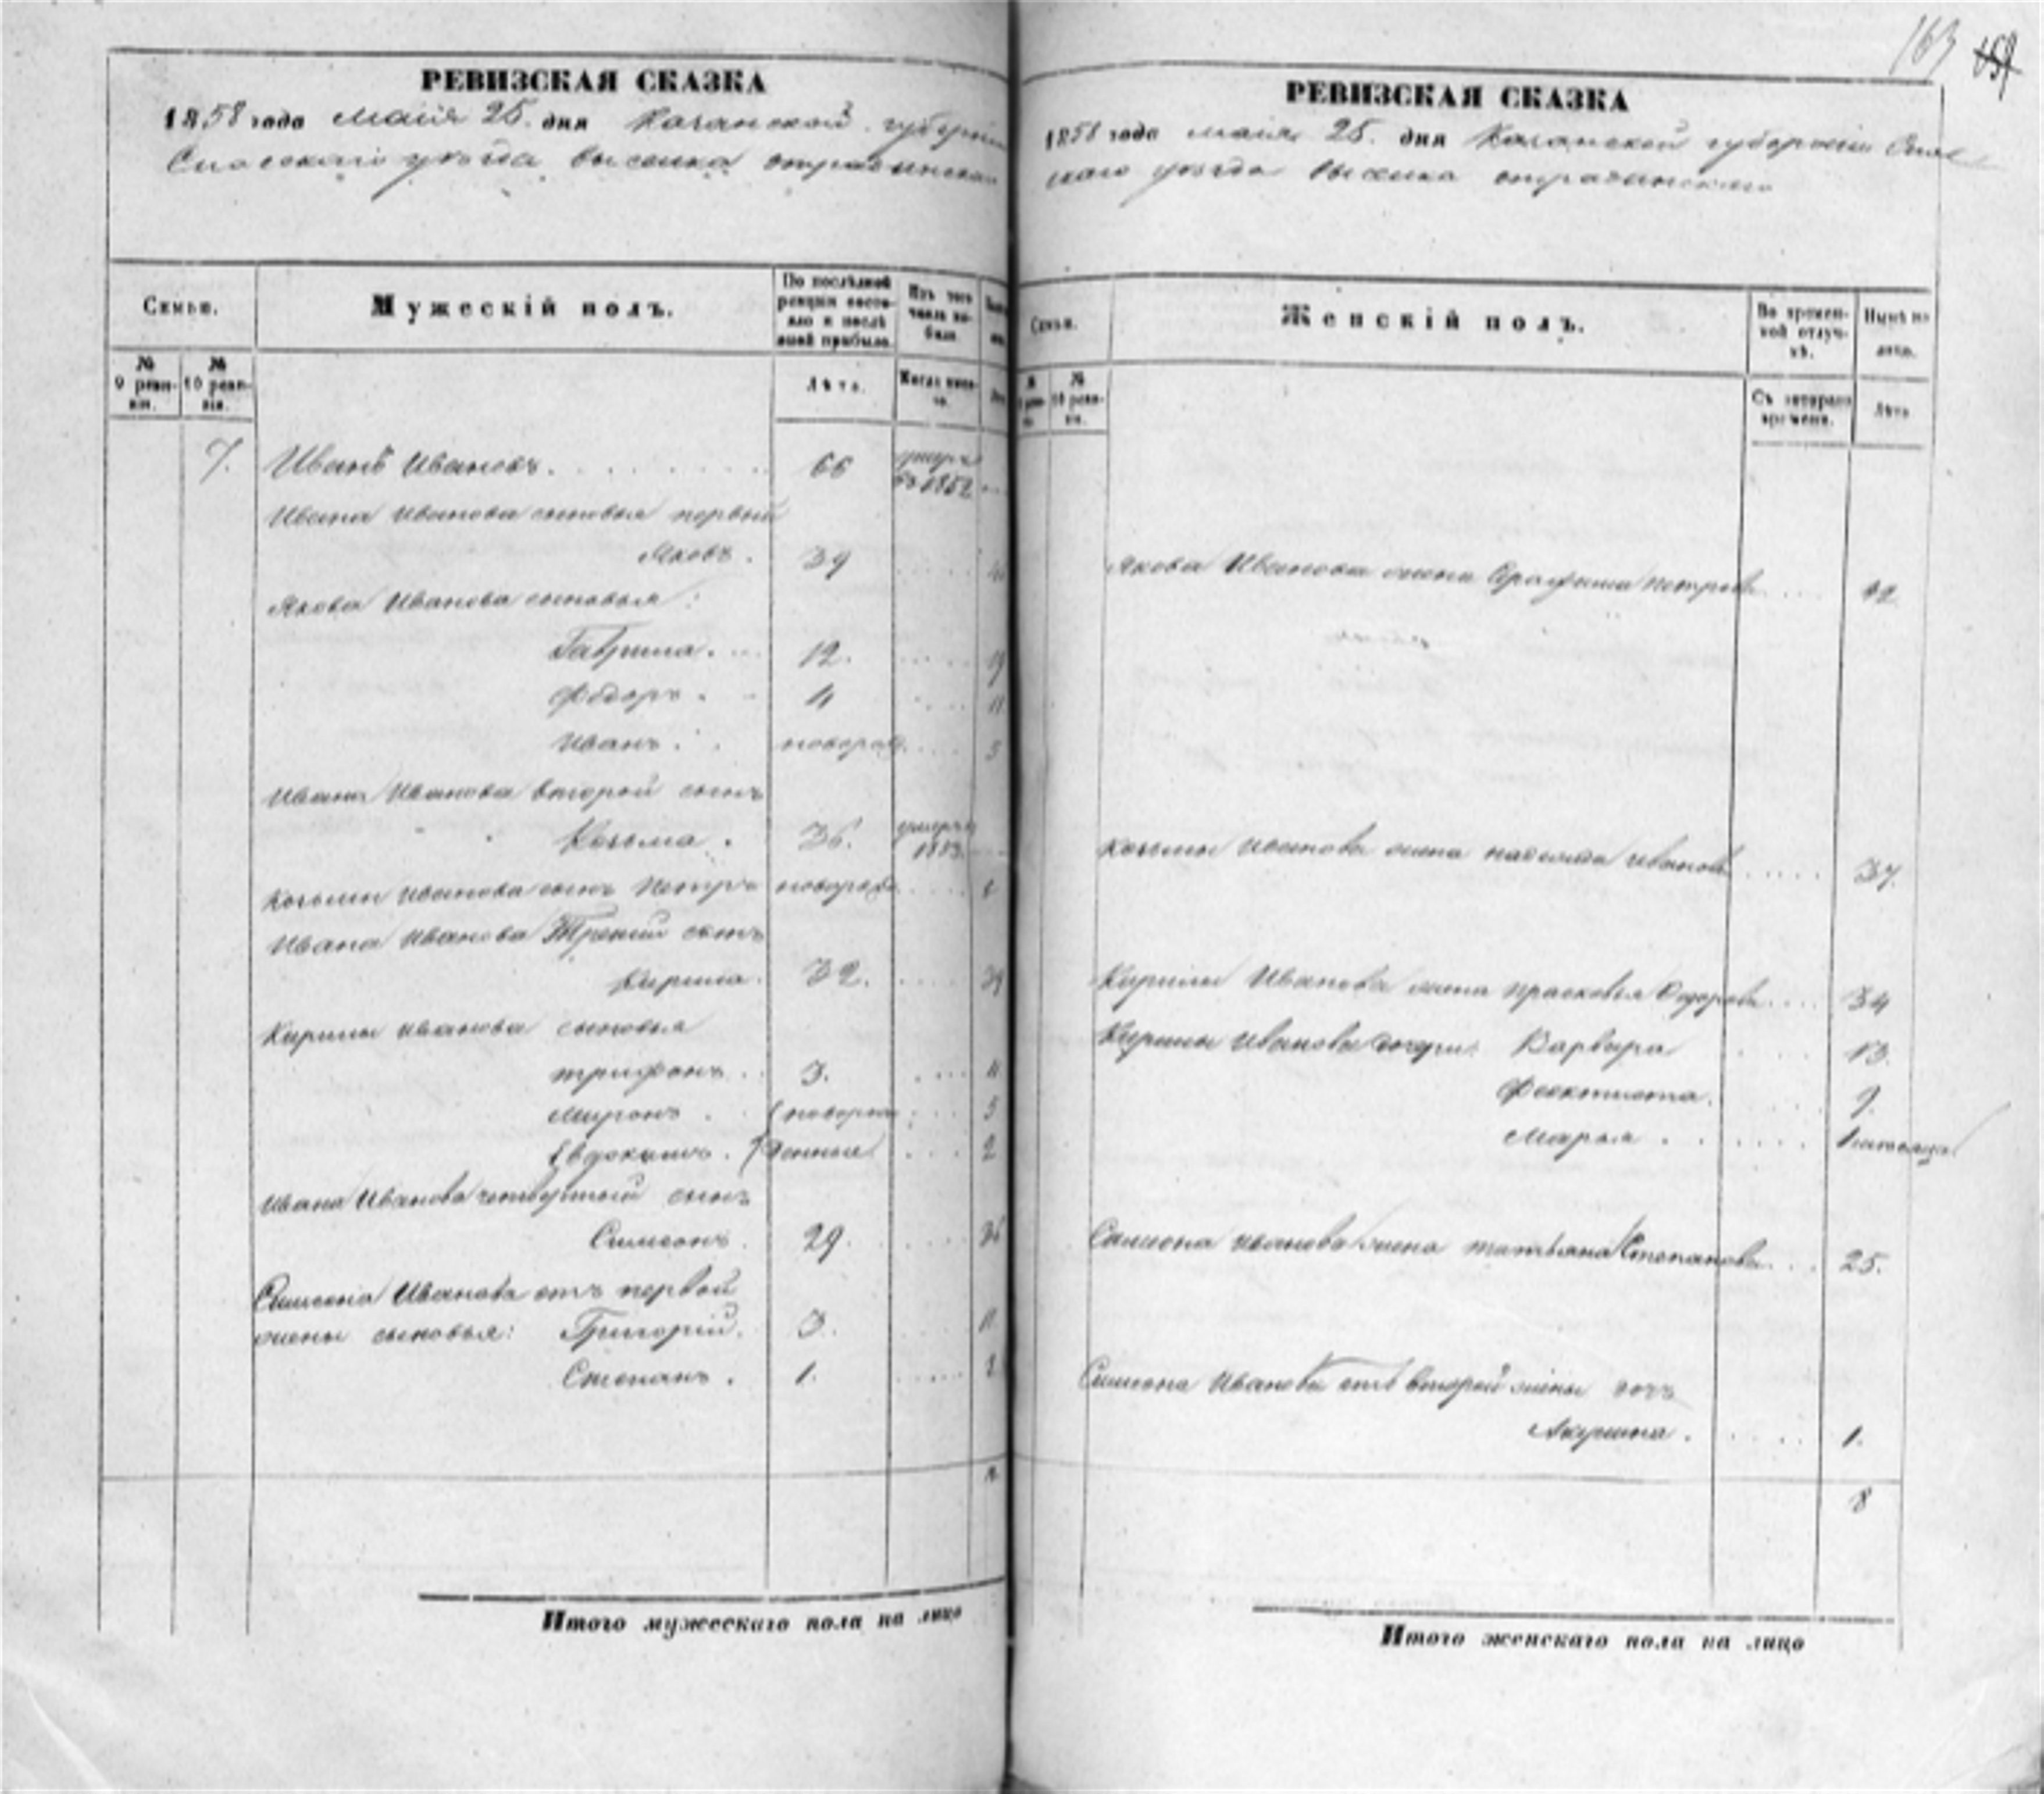 163
РЕВИЗСКАЯ СКАЗКА
1858 года маія 25. дня Казанской губерніи
Спаскаго уѣзда выселка
Семьи.
Мужескій полъ.
По послѣдней ревизіи состояло и послѣ оной прибыло.
Изъ того числа выбыло.
№ 9 ревизіи.
№ 10 ревизіи.
Лѣта.
Когда именно.
7. Иванъ Ивановъ. 66 умеръ въ 1852
Ивана Иванова сыновья первый
Яковъ. 39
Якова Иванова сыновья:
Гаврила. 12. 19
Федоръ. 4 11
Иванъ. новорож. 5
Ивана Иванова второй сынъ
Козьма. 36. умеръ
Козьмы Иванова сынъ Петръ новорож.
Ивана Иванова Третій сынъ
Кирила. 32. 39
Кирилы Иванова сыновья
Трифонъ. 3.
Миронъ. новорож 5
Евдокимъ. денные 2
Ивана Иванова четвертый сынъ
Симеонъ. 29. 36
Симеона Иванова отъ первой
жены сыновья: Григорій. 3.
Степанъ. 1.
Итого мужескаго пола на лицо
РЕВИЗСКАЯ СКАЗКА
1858 года маія 25. дня Казанской губерніи Спас
каго уѣзда выселка
Семьи.
Женскій полъ.
Во временной отлучкѣ.
Нынѣ на лицо.
№ 10 ревизіи.
Съ котораго времени.
Лѣта
Якова Иванова жена Петрова 42
Козьмы Иванова жена Иванова 37.
Кирилы Иванова жена Прасковья Федорова 34
Кирилы Иванова дочери: Варвара 13.
Феоктиста. 9.
Марья.
Симеона Иванова жена Татьяна Степанова 25.
Симеона Иванова отъ второй жены дочь
Акулина. 1.
8
Итого женскаго пола на лицо